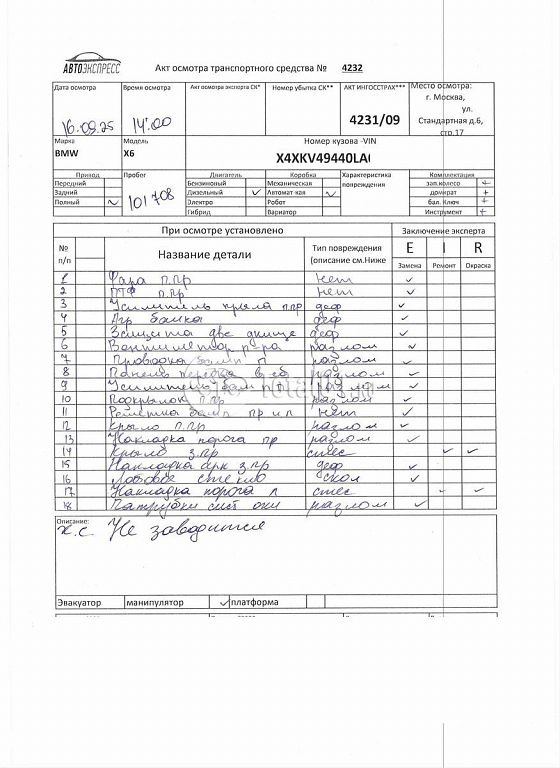 АВТОЭКСПРЕСС
Акт осмотра транспортного средства № 4232
Дата осмотра Время осмотра Акт осмотра эксперта СК* Номер убытка СК** АКТ ИНГОССТРАХ*** Место осмотра:
г. Москва,
ул.
16.09.25 14:00 4231/09 Стандартная д.6,
стр.17
Марка Модель Номер кузова -VIN
BMW X6 X4XKV49440LA
Привод Пробег Двигатель Коробка Характеристика повреждения Комплектация
Передний Бензиновый Механическая зап.колесо +
Задний 101708 Дизельный ✓ Автомат кая ✓ домкрат +
Полный ✓ Электро Робот бал. Ключ +
Гибрид Вариатор Инструмент +
При осмотре установлено Заключение эксперта
№ п/п Название детали Тип повреждения (описание см.Ниже E I R
Замена Ремонт Окраска
1 Фара п.пр нет ✓
2 ПТФ п.пр нет ✓
3 Усилитель крыла п.пр деф ✓
4 Агр банка деф ✓
5 Защита двс днище деф ✓
6 Вентилятор р-ра разлом ✓
7 Проводка бамп п разлом ✓
8 Панель переда в сб разлом ✓
9 Усилитель бам п п разлом ✓
10 Подкрылок п.пр разлом ✓
11 Решетка бамп пр и л нет ✓
12 Крыло п.пр разлом ✓
13 Накладка порога пр разлом ✓
14 Крыло з.пр ✓ ✓
15 Накладка арк з.пр деф ✓
16 Лобовое стекло скол ✓
17 Накладка порога л ✓ ✓
18 Патрубки сист охл разлом ✓
Описание:
Не заводится
Эвакуатор манипулятор ✓ платформа